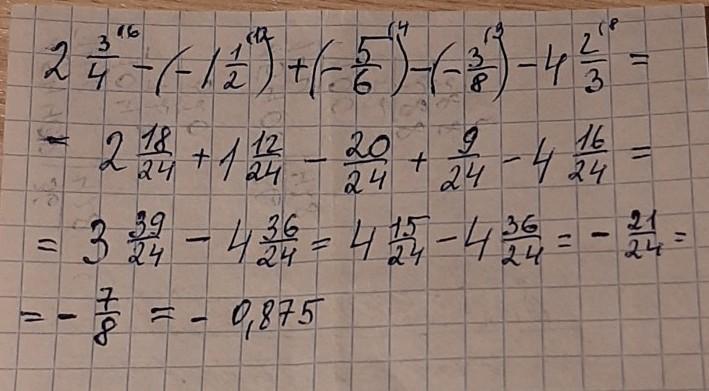 2 3/4 (6 - (-1 1/2 (12) + (- 5/6 (4) - (- 3/8 (3) - 4 2/3 (8 =
= 2 18/24 + 1 12/24 - 20/24 + 9/24 - 4 16/24 =
= 3 39/24 - 4 36/24 = 4 15/24 - 4 36/24 = - 21/24 =
= - 7/8 = - 0,875